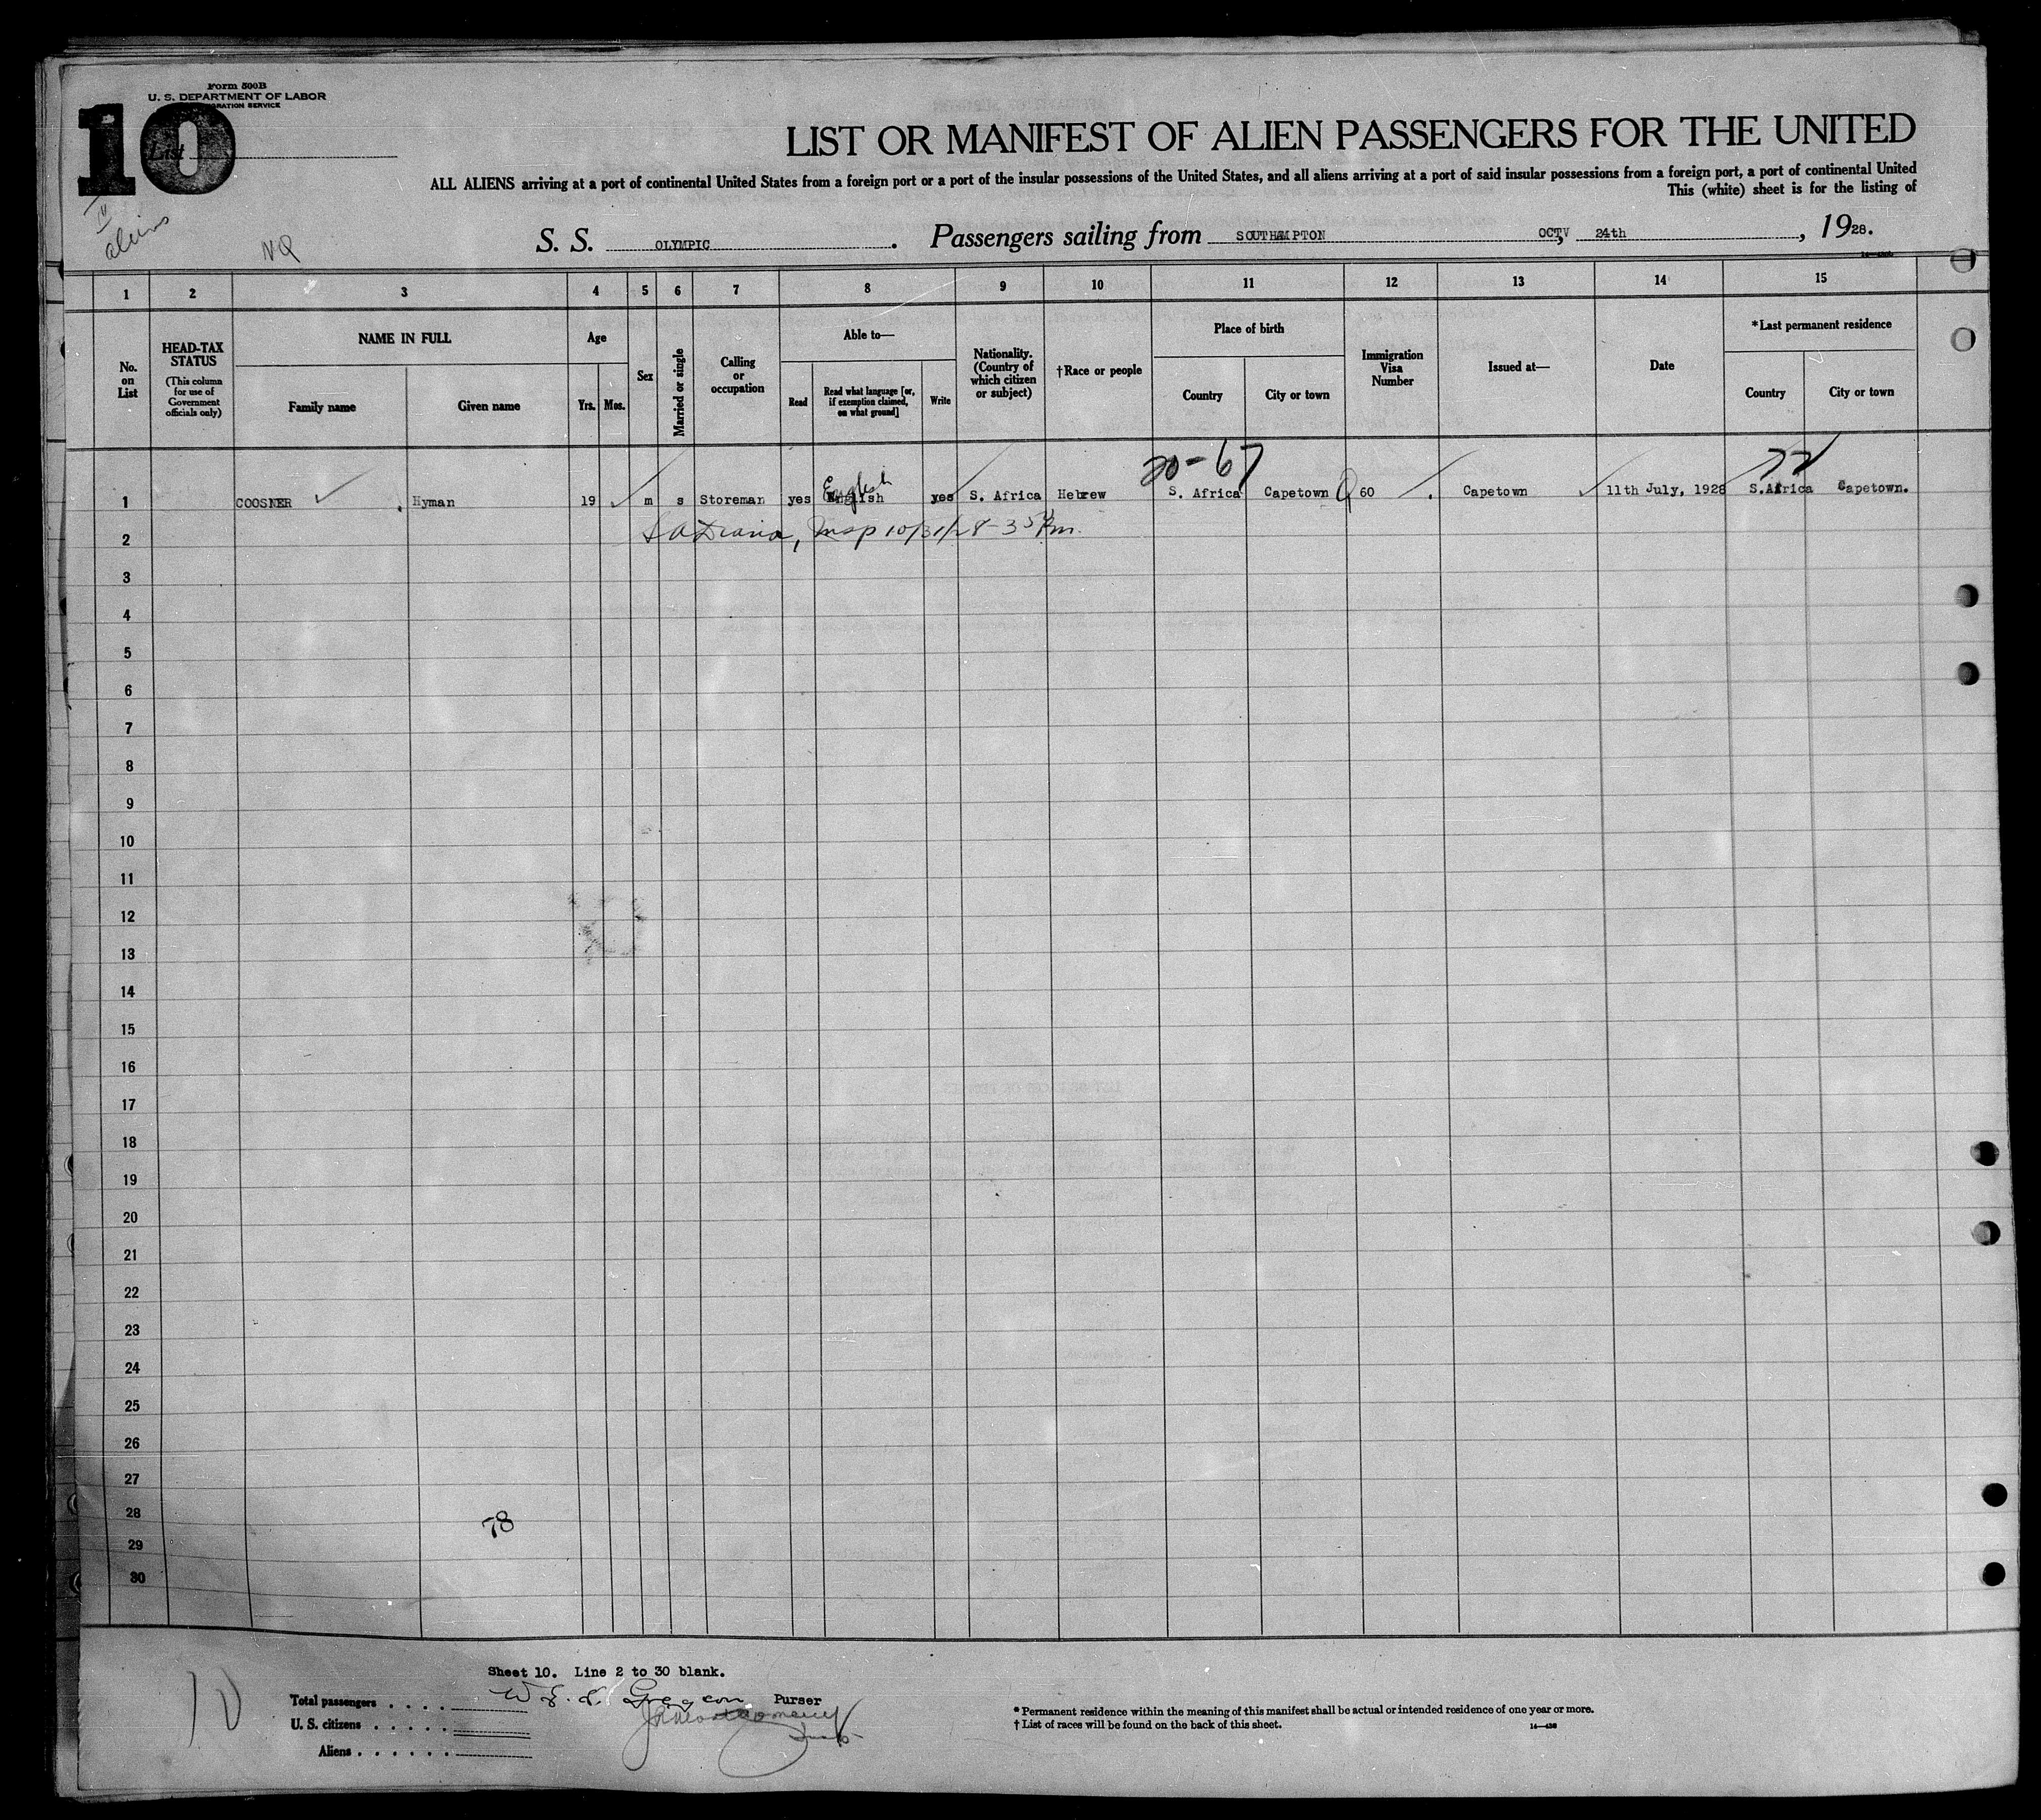 Form 500B
U. S. DEPARTMENT OF LABOR
IMMIGRATION SERVICE
10
List
aliens
NQ
LIST OR MANIFEST OF ALIEN PASSENGERS FOR THE UNITED
ALL ALIENS arriving at a port of continental United States from a foreign port or a port of the insular possessions of the United States, and all aliens arriving at a port of said insular possessions from a foreign port, a port of continental United
This (white) sheet is for the listing of
S. S. OLYMPIC . Passengers sailing from SOUTHAMPTON OCTV, 24th , 1928.
1 2 3 4 5 6 7 8 9 10 11 12 13 14 15
No. on List
HEAD-TAX STATUS
(This column for use of Government officials only)
NAME IN FULL
Family name Given name
Age
Yrs. Mos.
Sex
Married or single
Calling or occupation
Able to—
Read Read what language [or, if exemption claimed, on what ground] Write
Nationality. (Country of which citizen or subject)
†Race or people
Place of birth
Country City or town
Immigration Visa Number
Issued at—
Date
*Last permanent residence
Country City or town
20-67
English
1 COOSNER Hyman 19 m s Storeman yes English yes S. Africa Hebrew S. Africa Capetown Q 60 Capetown 11th July, 1928 S.Africa Capetown.
2 Insp 10/31/28
3
4
5
6
7
8
9
10
11
12
13
14
15
16
17
18
19
20
21
22
23
24
25
26
27
28
78
29
30
Sheet 10. Line 2 to 30 blank.
10
Total passengers . . . . Purser
U. S. citizens . . . . .
Aliens . . . . . .
* Permanent residence within the meaning of this manifest shall be actual or intended residence of one year or more.
† List of races will be found on the back of this sheet.
14—436